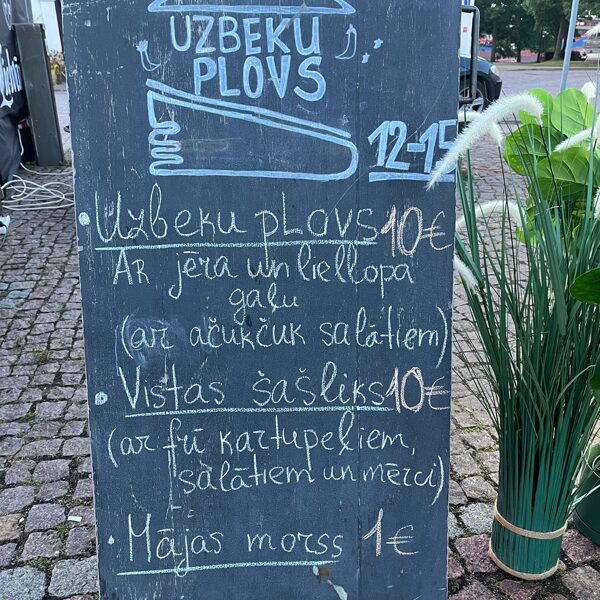 UZBEKU
PLOVS
12-15
Uzbeku pLOVS 10€
AR jēra un liellopa
gaļu
(ar ačukčuk salātiem)
Vistas šašliks 10€
(ar frī kartupeļiem,
salātiem un mērci)
Mājas morss 1€